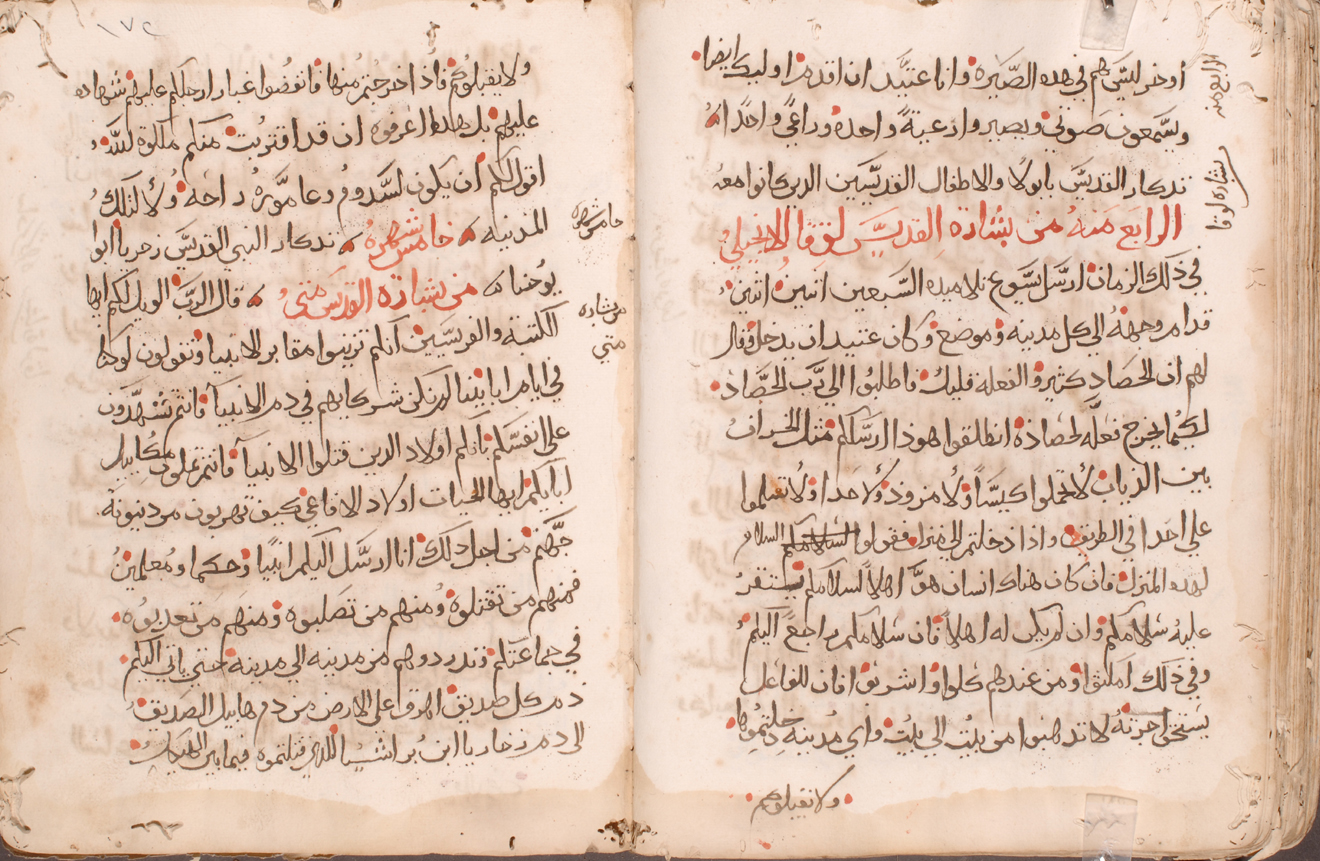 أوخر ليس هم في هده الصيره وانا عتيد ان اقدمهم اوليك ايضا
ويسمعون صوتي ويصير وادعية واحده وراعي واحدا
تدكار القديس بابولا والاطفال القديسين الدين كانوا معه
الرابع منه من بشاره القديس لوقا الانجيلي
في ذلك الزمان ارسل يسوع تلاميده السبعين اتنين اتنين
قدام وجهه الي كل مدينه وموضع وكان عتيد ان يدخل وقال
لهم ان الحصاد كثير والفعله قليل فاطلبوا الي رب الحصاد
لكيما يخرج فعله لحصاده انطلقوا هودا ارسلكم متل الخراف
بين الذياب لا تحملوا كيسا ولا مزود ولا حدا ولا تقبلوا
علي احدا في الطريق واذا دخلتم الي منزل فقولوا السلام
لهده المنزل فان كان هناك انسان هو اهلا لسلامكم يستقر
عليه سلامكم وان لم يكن له اهلا فان سلامكم يراجع اليكم
وفي ذلك امكثوا ومن عندهم كلوا واشربوا فان للفاعل
يستحق اجرته لا تدهبوا من بيت الي بيت واي مدينه دخلتموها
ولا تقبلوهم
الرابع منه
بشاره لوقا
١٧٢
ولا يقبلوكم فاذ اخرجتم منها فانفضوا غبار ارجلكم عليهم شهاده
عليهم بل هدا اعرفوه ان قد اقتربت منكم ملكوة الله
اقول لكم ان يكون لسدوم وعاموره راحه ولا لتلك
المدينه خامس شهره تدكار النبي القديس زخريا ابو
يوحنا من بشارة القديس متي قال الرب الويل لكم ايها
الكتبه والفريسيين انكم تزينوا مقابر الانبيا وتقولون لو كنا
في ايام ابايينا لم نكن شركايهم في دم الانبيا فانتم تشهدون
علي انفسكم بانكم اولاد الدين قتلوا الانبيا فانتم مكاييل
ابايكم ايها الحيات اولاد الافاعي كيف تهربون من دينونة
جهنم من اجل ذلك انا ارسل اليكم انبيا وحكما ومعلمين
فمنهم من تقتلوه ومنهم من تصلبوه ومنهم من تعدبوه
في جماعتكم وتطردوهم من مدينه الي مدينه حتي ياتي اليكم
دم كل صديق اهرق علي الارض من دم هابيل الصديق
الي دم زخاريا ابن براشيا اللدي قتلتموه فيما بين الهيكل
خامس شهره
من بشاره
متي